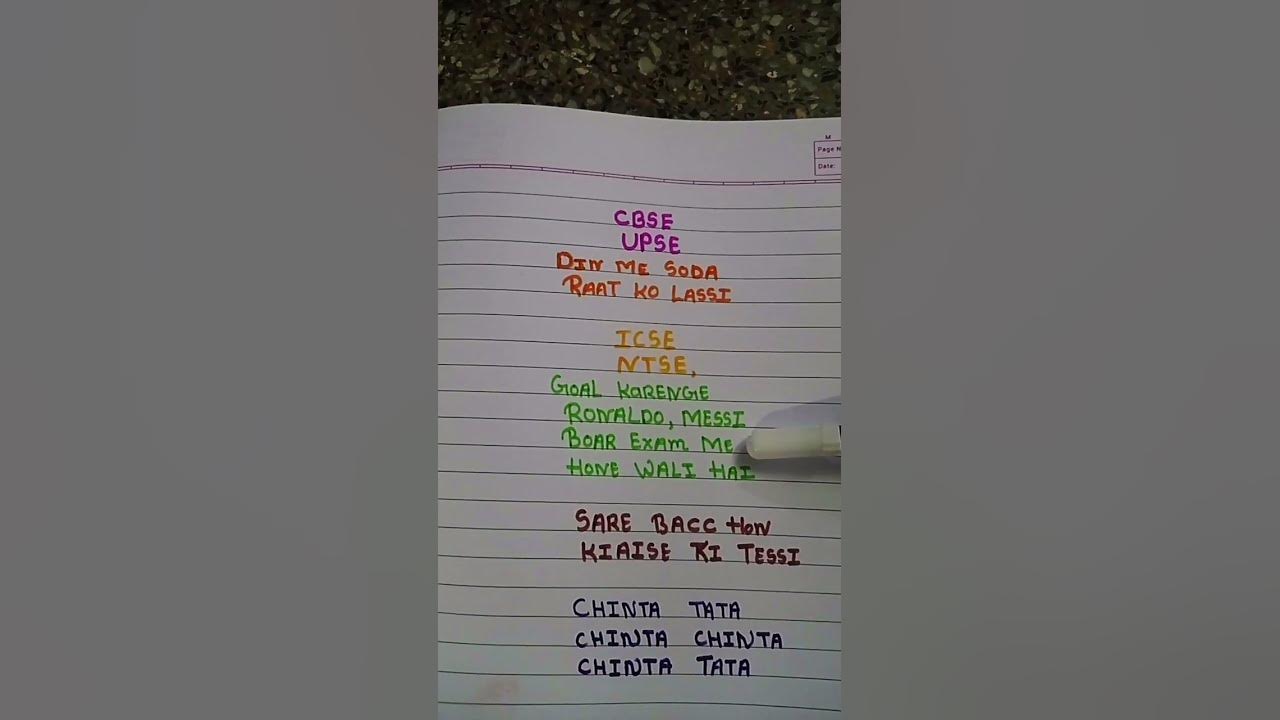 M
Page N
Date:
CBSE
UPSE
DIN ME SODA
RAAT KO LASSI
ICSE
NTSE,
GOAL KARENGE
RONALDO, MESSI
BOAR EXAM ME
HONE WALI HAI
SARE BACC HON
KIAISE KI TESSI
CHINTA TATA
CHINTA CHINTA
CHINTA TATA